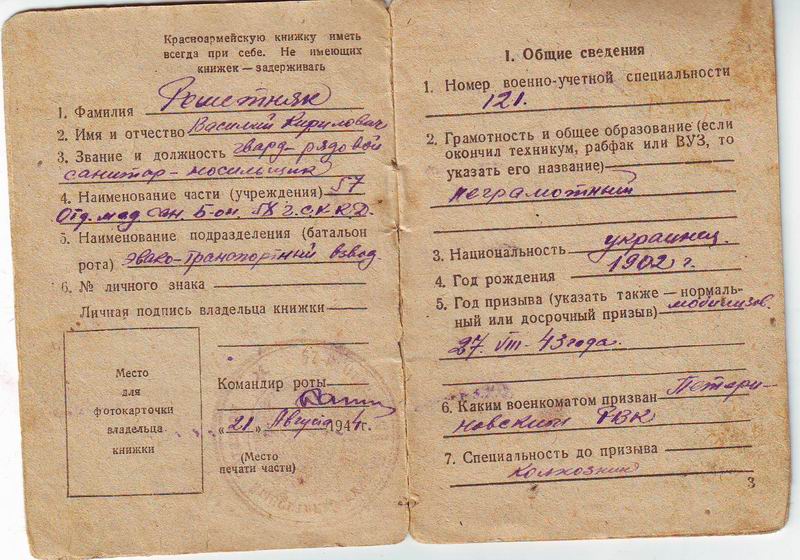 Красноармейскую книжку иметь
всегда при себе. Не имеющих
книжек — задерживать
1. Фамилия Решетняк
2. Имя и отчество Василий Кирилович
3. Звание и должность гвард рядовой
санитар-носильщик
4. Наименование части (учреждения) 57
Отд. мад сан. Б-он.
5. Наименование подразделения (батальон
рота) эвако-транспортний взвод.
6. № личного знака
Личная подпись владельца книжки
Место
для
фотокарточки
владельца
книжки
Командир роты
«21» Августа 1944г.
(Место
печати части)
I. Общие сведения
1. Номер военно-учетной специальности
121.
2. Грамотность и общее образование (если
окончил техникум, рабфак или ВУЗ, то
указать его название)
неграмотный
3. Национальность украинец.
4. Год рождения 1902 г.
5. Год призыва (указать также — нормаль-
ный или досрочный призыв) мобилизов.
27. VIII - 43 года.
6. Каким военкоматом призван Петери-
новским РВК
7. Специальность до призыва
колхозник
3